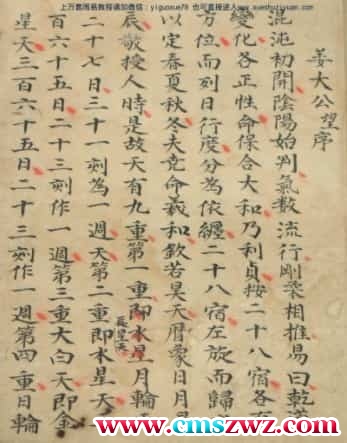 上万套周易教程请加微信：yiguoxue78 也可直接进入
姜大公望序
混沌初開陰陽始判氣數流行剛柔相推易曰乾道
變化各正性命保合大和乃利貞按二十八宿各有
方位而列日行度分為依纏二十八宿左旋而歸
以定春夏秋冬夫堯命羲和欽若昊天曆象日月星
辰敬授人時是故天有九重第一重即水星月輪
二十七日三十一刻為一週天第二重即水星天
百六十五日二十三刻作一週第三重大白天即金
星天三百六十五日二十三刻作一週第四重日輪
www.cmszwz.com